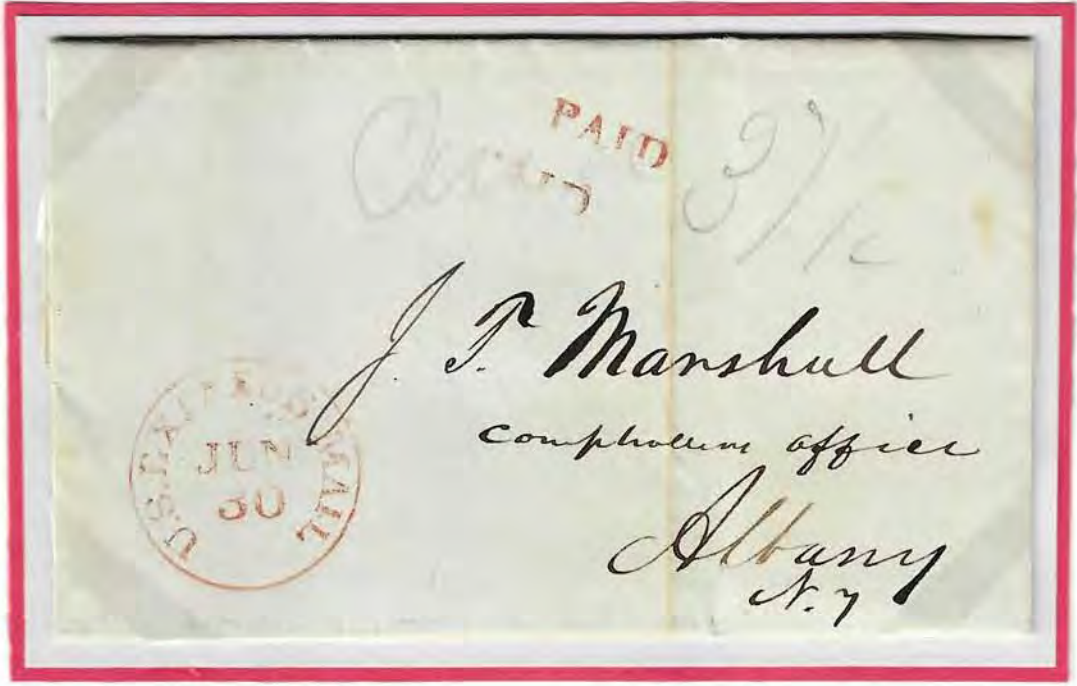 PAID
3/
J. P. Marshall
Comptrollers office
Albany
N.Y
U.S. EXPRESS MAIL
JUN
30